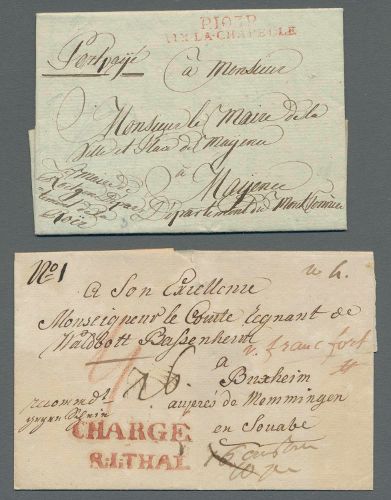 P.103.P
AIX-LA-CHAPELLE
Portpayé
à Monsieur
Monsieur le Maire de la
Ville et Place de Mayence
à Mayence
Département du Mont Tonnerre
No 1
A Son Excellence
Monseigneur le Comte regnant de
Waldbott Bassenheim
à
Buxheim
auprés de Memmingen
en Souabe
recommdt
CHARGÉ
R.I.THAL